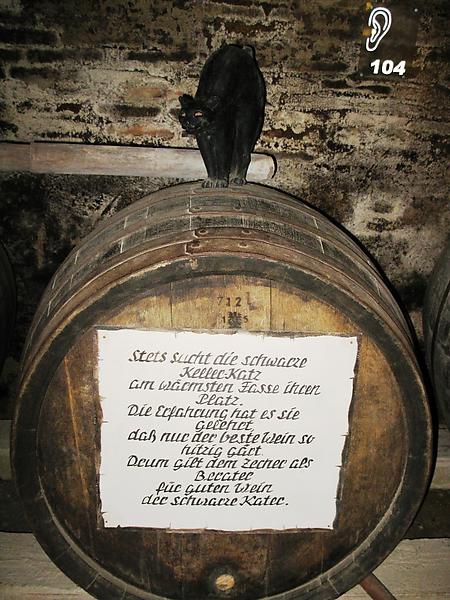 104
712
Stets sucht die schwarze
Keller-Katz
am wärmsten Fasse ihren
Platz.
Die Erfahrung hat es sie
gelehrt
daß nur der beste Wein so
hitzig gärt.
Drum gilt dem Zecher als
Berater
für guten Wein
der schwarze Kater.